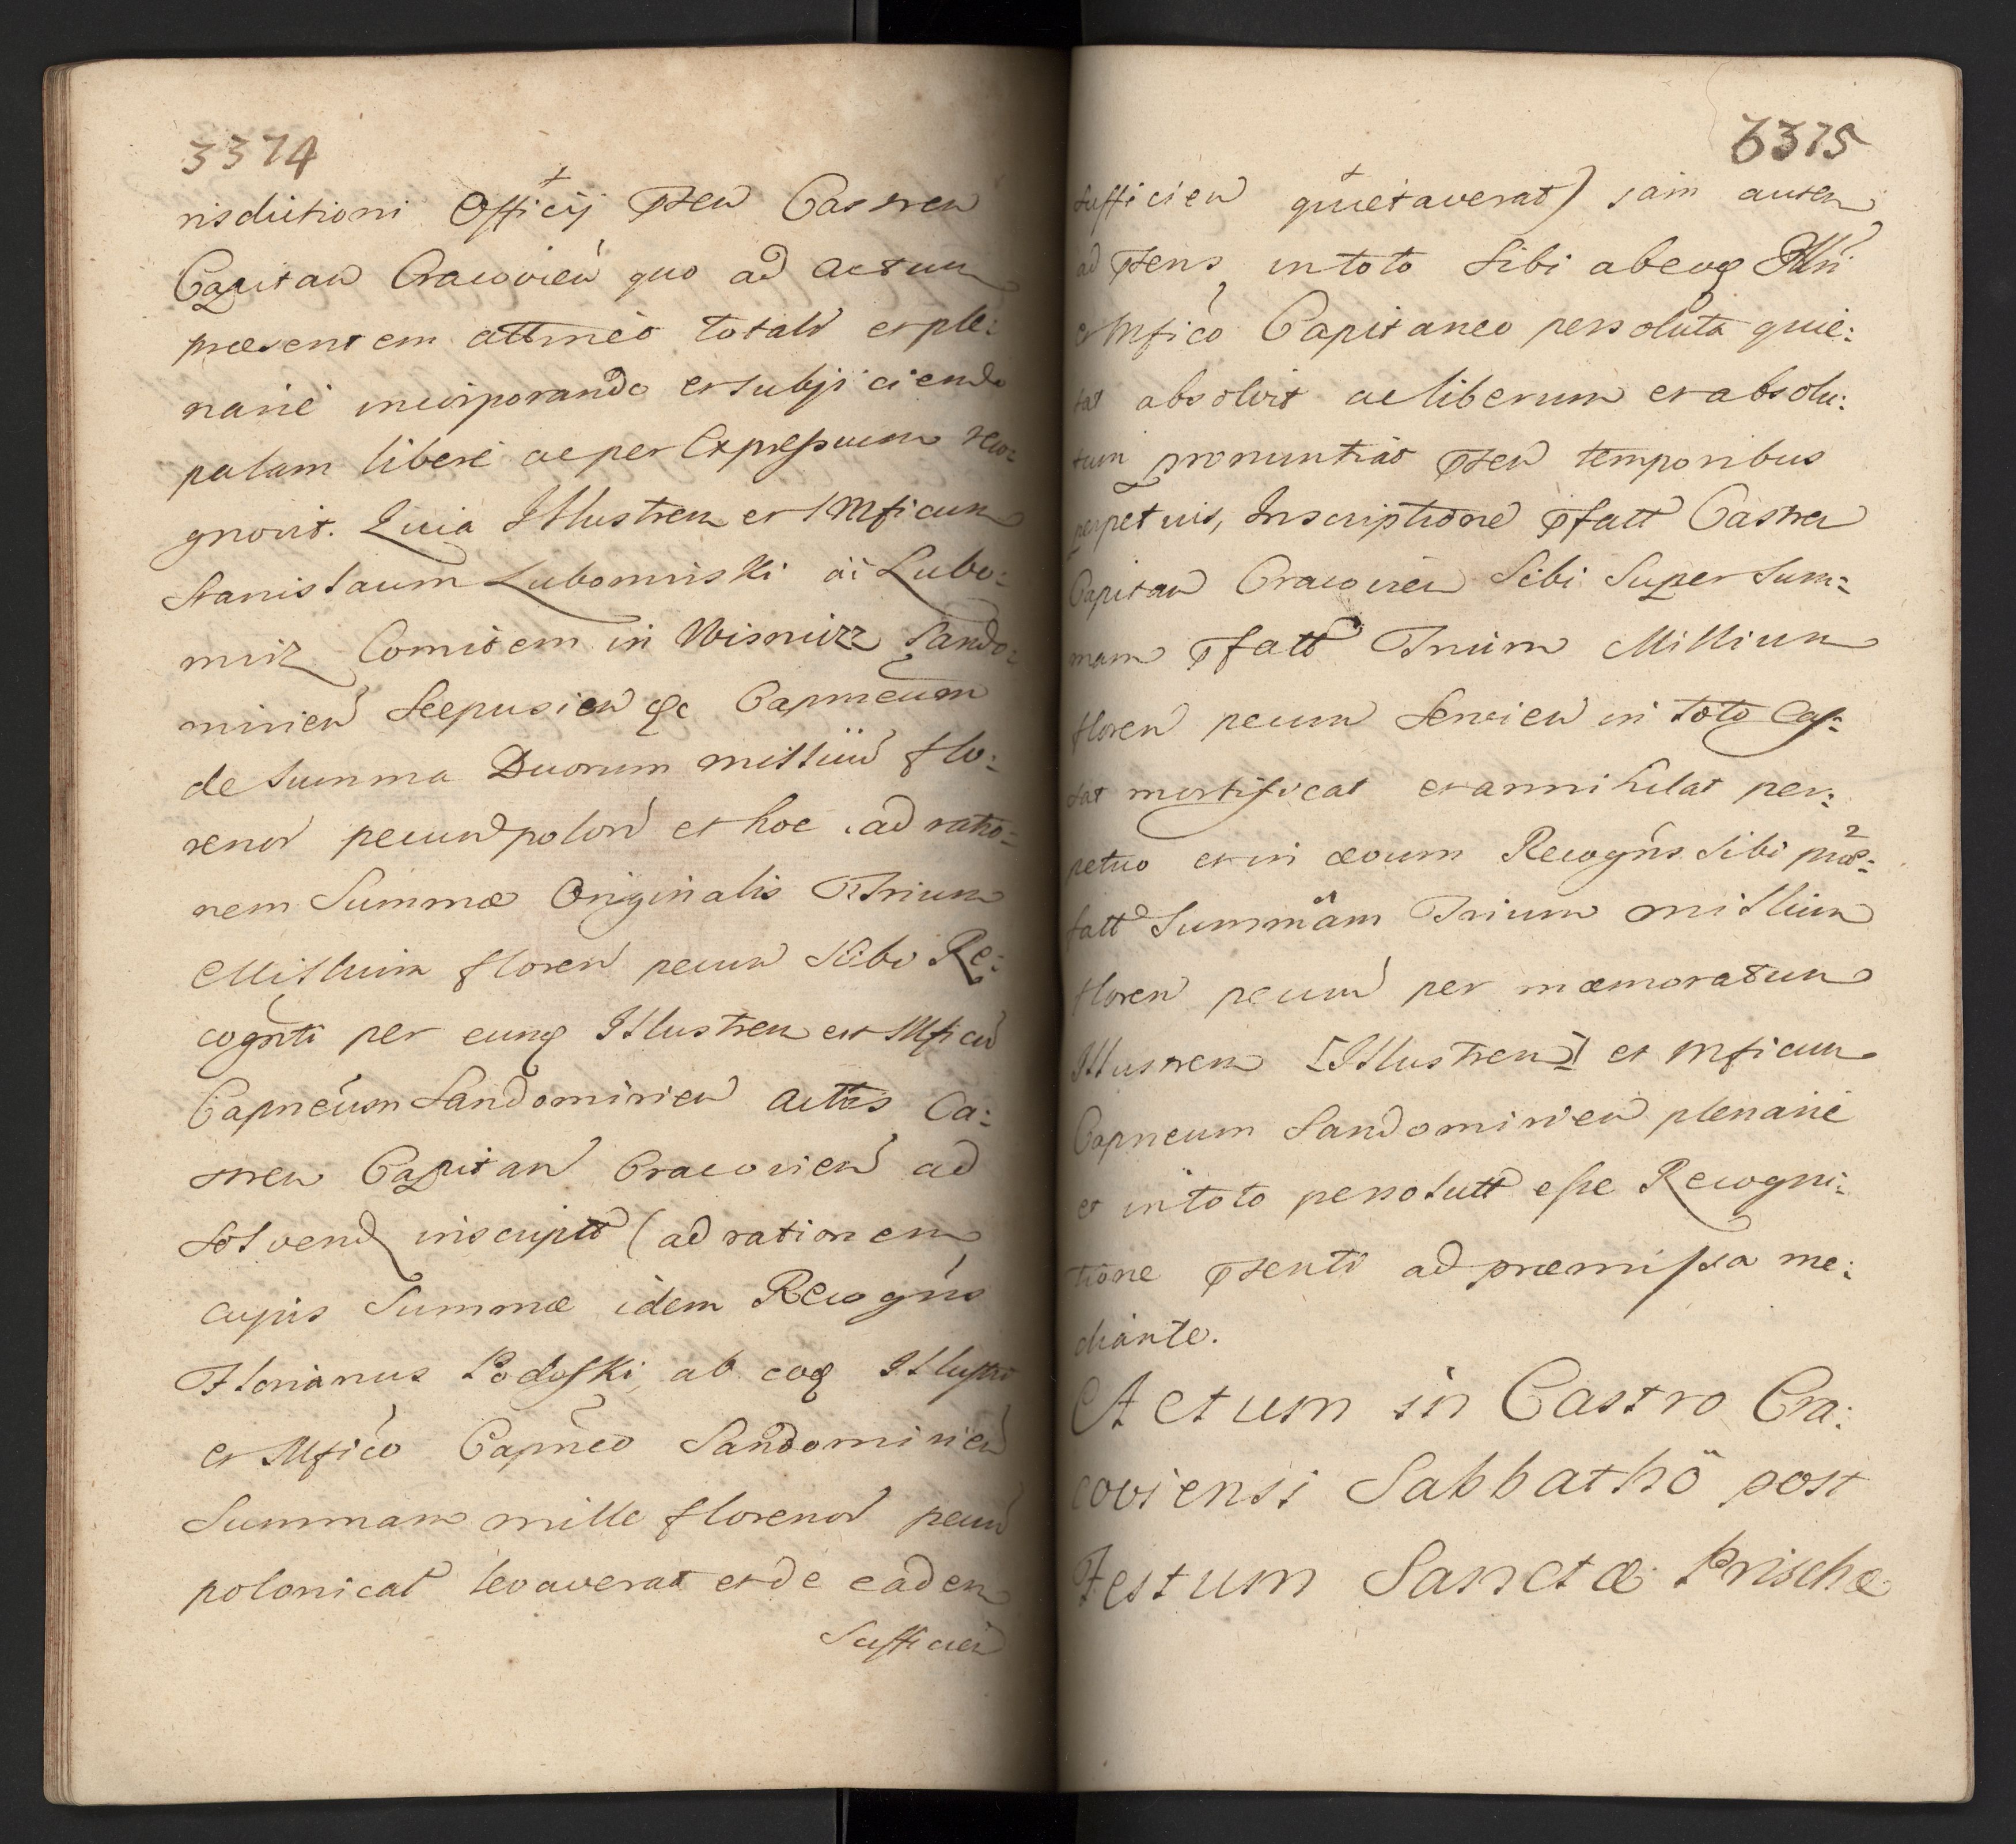 3374
risdictioni Officij pñten Castren
Capitan Cracovien quo ad actum
præsentem attineò totalr et ple:
narie incorporando et subjiciendo
palam libere ac per Expressum reco:
gnovit. Quia Illustrem et Mficum
Stanislaum Lubomirski ai Lubo:
mirz Comitem in Wisnicz Sando:
mirien Scepusien &c Capneum
de Summa Duorum millium flo:
renor pecun polon et hoc ad ratio:
nem Summæ Originalis Trium
Millium floren pecun Sibi Re:
cognti per eunq Illustrem et Mficu
Capneum Sandomirien actis Ca:
stren Capitan Cracovien ad
Solvend inscript (ad rationem
cujus Summæ idem Recogns
Florianus Podoski ab eoq Illustri
et Mfico Capneo Sandomirien
Summam mille florenor pecun
polonical levaverat et de eadem
Sufficien
3375
Sufficien quietaverat) jam autem
ad pñtens in toto Sibi ab eoq Illri
et Mfico Capitaneo persoluta quie:
tat absolvit ac liberum et absolu:
tum pronuntiat pñten temporibus
perpetuis, Inscriptione pfatt Castren
Capitan Cracovien Sibi Super Sum:
mam pfatt Trium Millium
floren pecun Servien in toto Cas:
sat mortificat et annihilat per:
petuo et in ævum Recogns Sibi præ:
fatt Summam Trium millium
floren pecun per mæmoratum
Illustrem [Illustrem] et Mficum
Capneum Sandomirien plenarie
et in toto persolutt esse Recogni:
tione pñtenti ad præmissa me:
diante.
Actum in Castro Cra:
coviensi Sabbathô post
Festum Sanctæ Prischæ